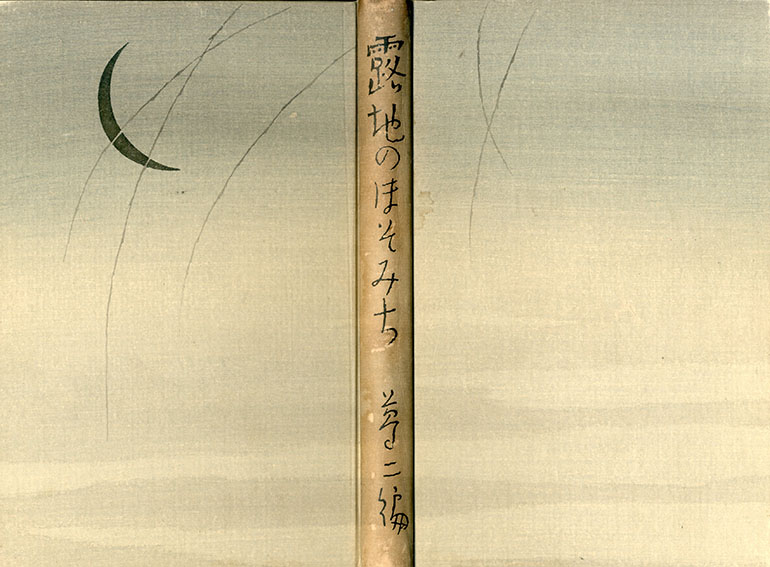 露地のほそみち 夢二編